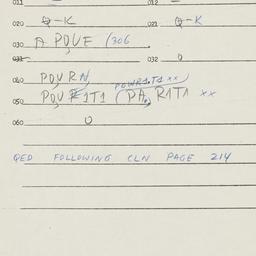 011 012
020 Q-K 021 Q-K
030 A PQUE (306
031 032 0
040 PQURN
050 PQURITI (PA, RITI xx
060 0
QED FOLLOWING CLN PAGE 214